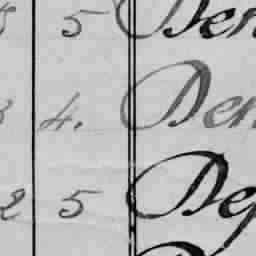 5 Den
4. Den
2 5 Dep